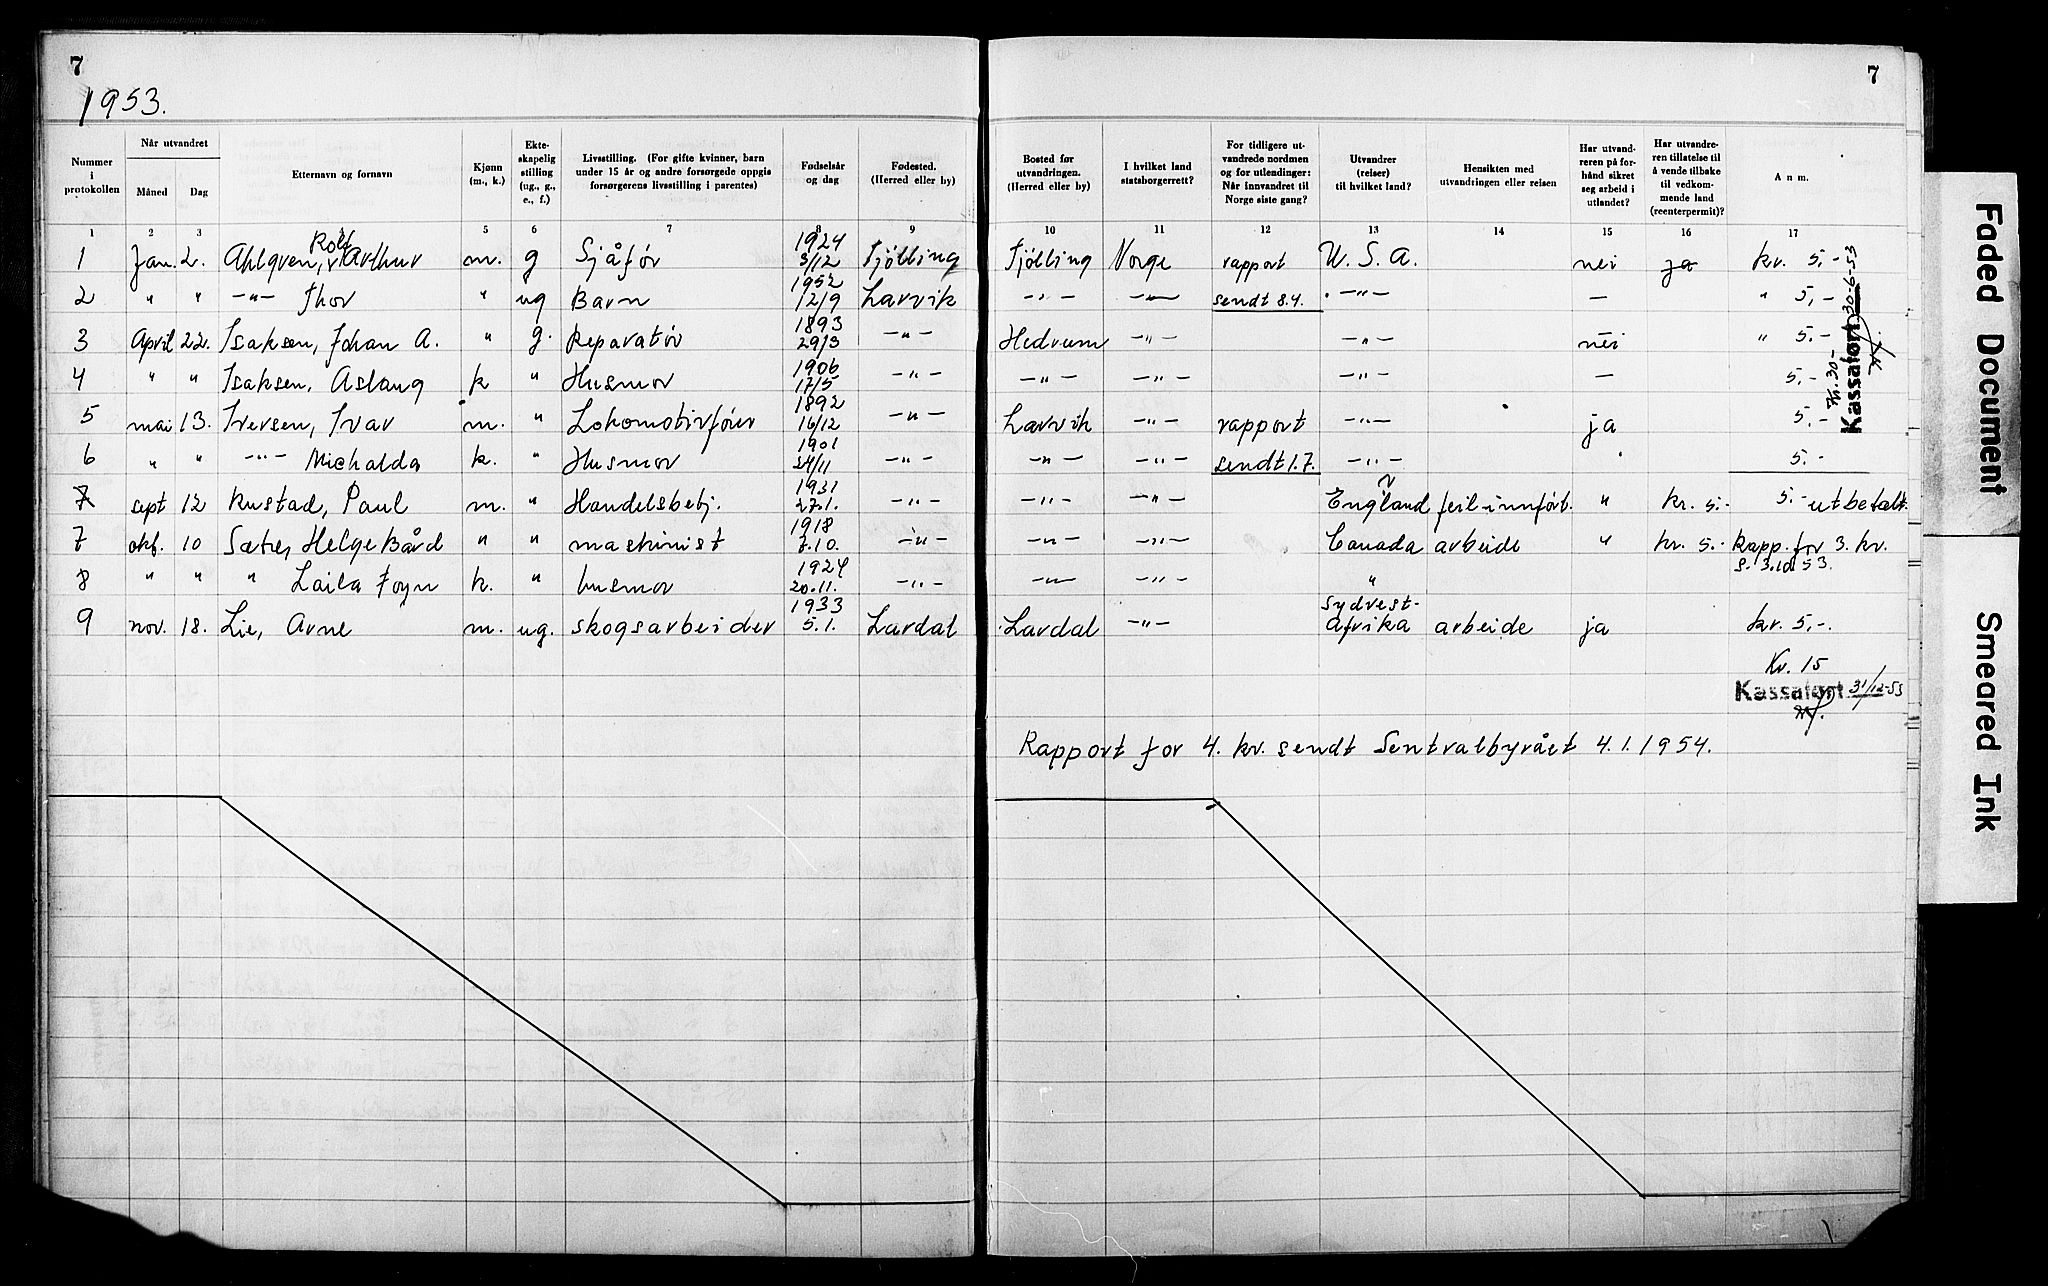 7
7
1953.
Nummer i protokollen | Når utvandret: Måned | Dag | Etternavn og fornavn | Kjønn (m., k.) | Ekteskapelig stilling (ug., g., e., f.) | Livsstilling. (For gifte kvinner, barn under 15 år og andre forsørgede oppgis forsørgerens livsstilling i parentes) | Fødselsår og dag | Fødested. (Herred eller by) | Bosted før utvandringen. (Herred eller by) | I hvilket land statsborgerrett? | For tidligere utvandrede nordmen og for utlendinger: Når innvandret til Norge siste gang? | Utvandrer (reiser) til hvilket land? | Hensikten med utvandringen eller reisen | Har utvandreren på forhånd sikret seg arbeid i utlandet? | Har utvandreren tillatelse til å vende tilbake til vedkommende land (reenterpermit)? | Anm.
1 2 3 5 6 7 8 9 10 11 12 13 14 15 16 17
1 Jan. 2. Ahlgren, Rolf Arthur m. g Sjåfør 1924 3/12 Tjølling Tjølling Norge rapport U.S.A. nei ja kr. 5.-
2 " " -"- Thor " ug Barn 1952 12/9 Larvik -"- -"- sendt 8.4. -"- — " 5,-
3 April 22. Isaksen, Johan A. " g. Reparatør 1893 29/3 -"- Hedrum -"- -"- nei " 5.-
4 " " Isaksen, Aslaug k " Husmor 1906 17/5 -"- -"- -"- -"- — 5.-
5 mai 13. Iversen, Ivar m. " Lokomotivfører 1892 16/12 -"- Larvik -"- rapport -"- ja 5.-
6 " " -"- Michalda k. " Husmor 1901 24/11 -"- -"- -"- sendt 1.7. -"- 5.-
Kr. 30.- Kassaført 30-6-53
7 sept 12 Rustad, Paul m. " Handelsbetj. 1931 27.1. -"- -"- -"- England feil innført. " kr. 5.- 5.- utbetalt.
7 okt. 10 Sætre, Helge Bård " " maskinist 1918 7.10. -"- -"- -"- Canada arbeide " kr. 5.- Rapp. for 3. kv. s. 3.10.53.
8 " " " Laila Foyn k. " husmor 1924 20.11. -"- -"- -"- "
9 nov. 18. Lie, Arne m. ug. skogsarbeider 1933 5.1. Lardal Lardal -"- Sydvest-Afrika arbeide ja kr. 5,-.
Kr. 15
Kassaført 31/12-53
Rapport for 4. kv. sendt Sentralbyrået 4.1.1954.
Faded Document
Smeared Ink